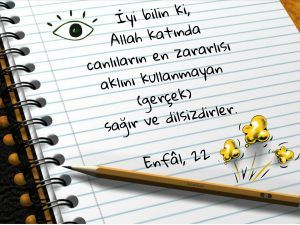 İyi bilin ki,
Allah katında
canlıların en zararlısı
aklını kullanmayan
(gerçek)
sağır ve dilsizdirler.
Enfâl, 22